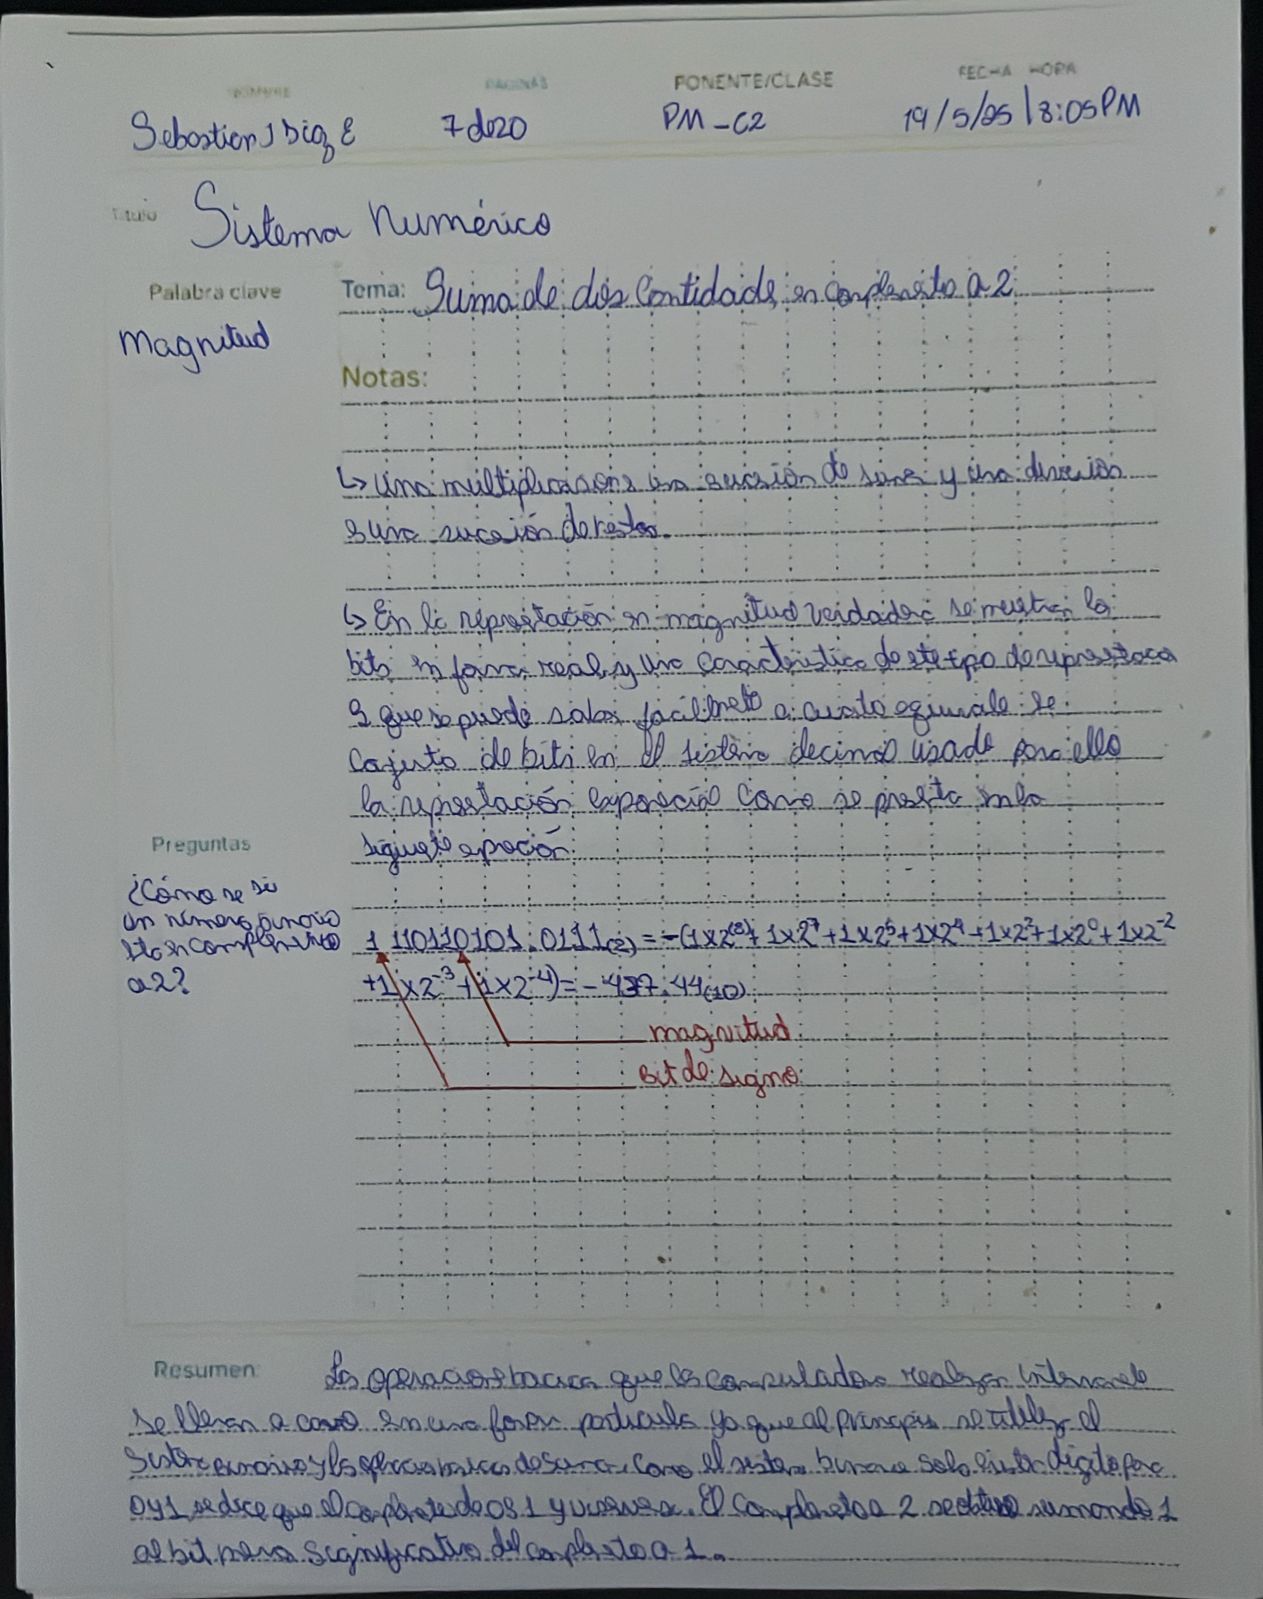 NOMBRE PAGINAS PONENTE/CLASE FECHA HORA
Sebastian J Diaz E 7 de 20 PM-C2 19/5/25 | 8:05PM
Titulo Sistema numérico
Palabra clave Tema: Suma de dos Cantidades en complemento a 2
magnitud
Notas:
↳ Una multiplicacion es una sucesión de sumas y una division
es una sucesión de restas.
↳ En la representación en magnitud verdadera se muestran los
bits en forma real, y una caracteristica de este tipo de
es que se puede saber facilmente a cuanto equivale
conjunto de bits en el sistema decimal usando para ello
la representación exponencial como se presenta en la
siguiente
Preguntas
¿Cómo se si
un número binario
esta en complemento
a 2?
1 110110101.0111(2) = -(1x2^(8) + 1x2^7 + 1x2^5 + 1x2^4 + 1x2^2 + 1x2^0 + 1x2^-2
+1x2^-3 + 1x2^-4) = -437.44(10)
magnitud
Bit de signo
Resumen: Las operaciones basicas que las computadoras realizan internamente
se llevan a cabo en una forma particular ya que al principio se utiliza el
sistema binario y las operaciones basicas de suma. Como el sistema binario solo
0 y 1 se dice que el complemento de 0 es 1 y viceversa. El Complemento a 2 se obtiene sumando 1
al bit menos significativo del complemento a 1.